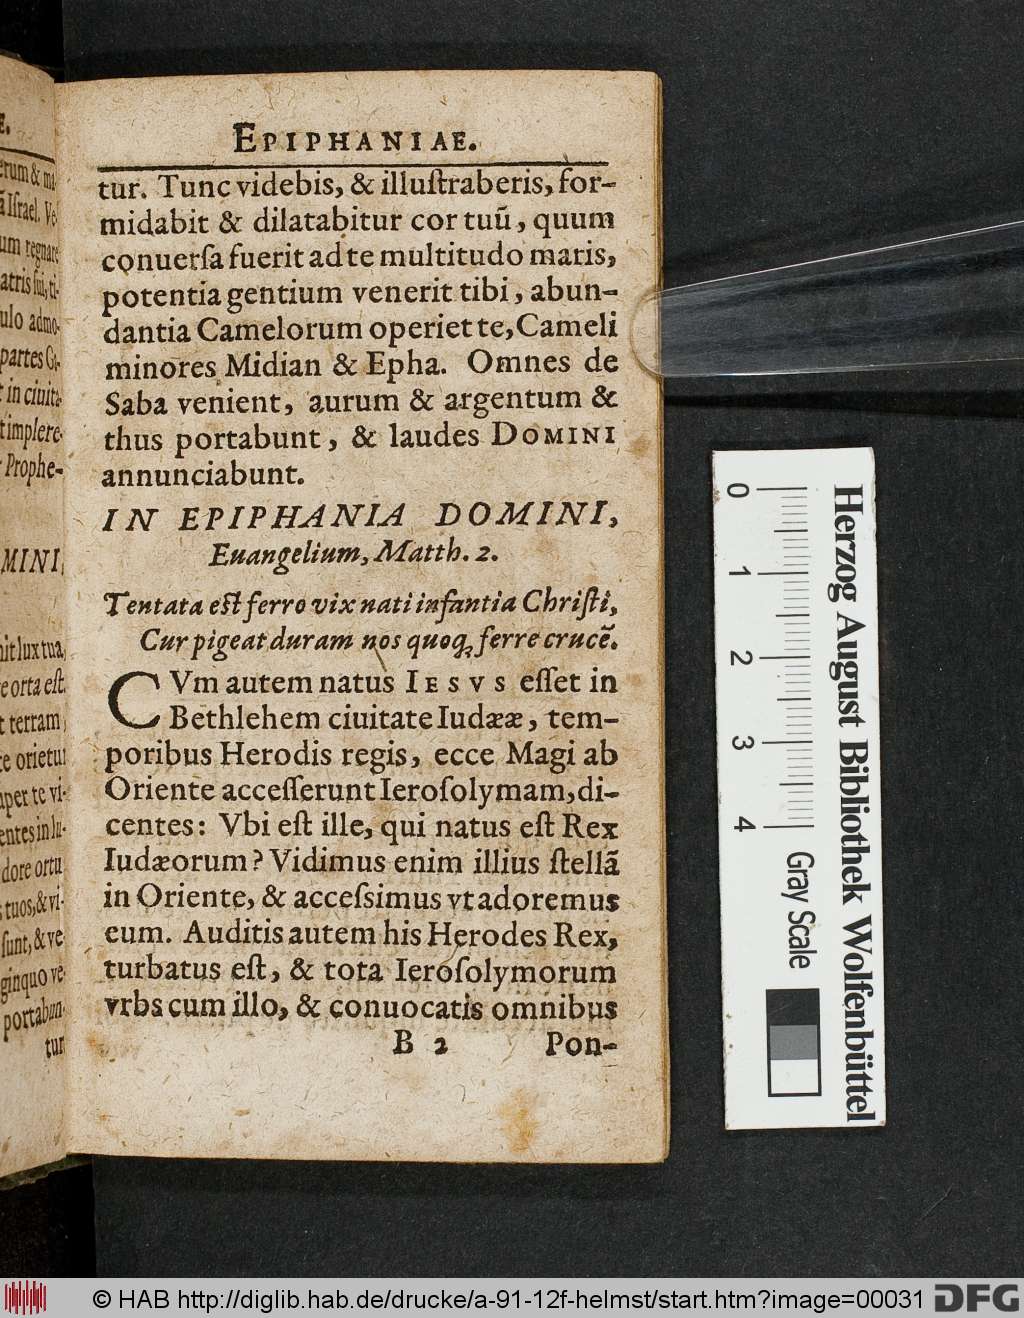 EPIPHANIAE.
tur. Tunc videbis, & illuſtraberis, for-
midabit & dilatabitur cor tuũ, quum
conuerſa fuerit ad te multitudo maris,
potentia gentium venerit tibi, abun-
dantia Camelorum operiet te, Cameli
minores Midian & Epha. Omnes de
Saba venient, aurum & argentum &
thus portabunt, & laudes DOMINI
annunciabunt.
IN EPIPHANIA DOMINI,
Euangelium, Matth. 2.
Tentata eſt ferro vix nati infantia Chriſti,
Cur pigeat duram nos quoq; ferre crucẽ.
CVm autem natus IESVS eſſet in
Bethlehem ciuitate Iudææ, tem-
poribus Herodis regis, ecce Magi ab
Oriente acceſſerunt Ieroſolymam, di-
centes: Vbi eſt ille, qui natus eſt Rex
Iudæorum? Vidimus enim illius ſtellã
in Oriente, & acceſsimus vt adoremus
eum. Auditis autem his Herodes Rex,
turbatus eſt, & tota Ieroſolymorum
vrbs cum illo, & conuocatis omnibus
B 2 Pon-
E.
erum & ma-
ã Iſrael. Ve-
um regnare
atris ſui, ti-
ulo admo-
partes Ga-
t in ciuita-
t implere-
Prophe-
MINI,
nit lux tua,
e orta eſt.
t terram,
te orietur
uper te vi-
entes in lu-
dore ortu
s tuos, & vi-
ſunt, & ve-
ginquo ve-
portabun-
tur
0 1 2 3 4
Gray Scale
Herzog August Bibliothek Wolfenbüttel
© HAB http://diglib.hab.de/drucke/a-91-12f-helmst/start.htm?image=00031
DFG